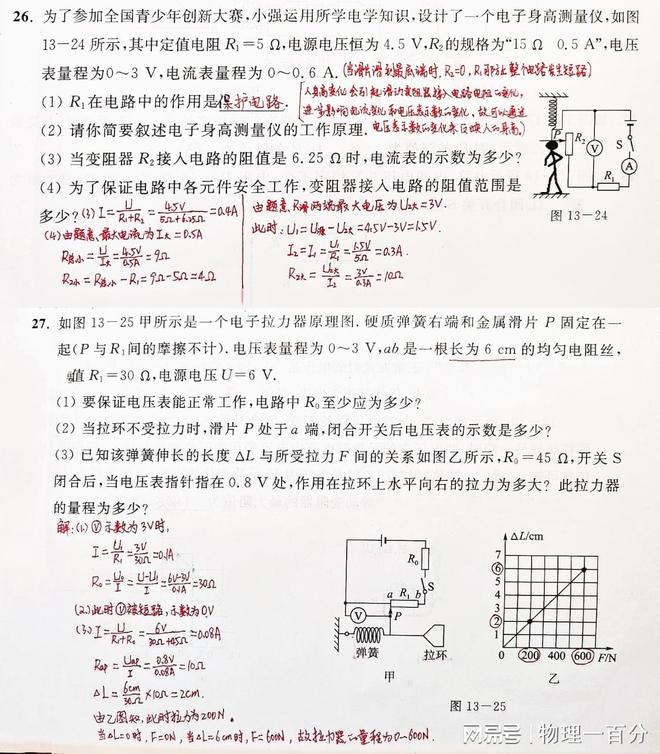 26. 为了参加全国青少年创新大赛,小强运用所学电学知识,设计了一个电子身高测量仪,如图
13-24 所示,其中定值电阻 R₁=5 Ω,电源电压恒为 4.5 V,R₂的规格为“15 Ω 0.5 A”,电压
表量程为0~3 V,电流表量程为 0~0.6 A.(当滑片滑到最底端时,R₂=0,R₁可防止整个电路发生短路)
(1) R₁在电路中的作用是保护电路.
人身高变化会引起滑动变阻器接入电路电阻的变化,
进而影响电流变化和电压表示数的变化,故可以通过
电压表示数的变化来反映人的身高.
(2) 请你简要叙述电子身高测量仪的工作原理.
(3) 当变阻器 R₂接入电路的阻值是 6.25 Ω 时,电流表的示数为多少?
(4) 为了保证电路中各元件安全工作,变阻器接入电路的阻值范围是
多少?
(3) I=U/(R₁+R₂)=4.5V/(5Ω+6.25Ω)=0.4A
(4)由题意,最大电流为I大=0.5A
R总小=U/I大=4.5V/0.5A=9Ω
R₂小=R总小-R₁=9Ω-5Ω=4Ω
由题意R滑两端最大电压为U₂大=3V.
此时:U₁=U源-U₂大=4.5V-3V=1.5V.
I₂=I₁=U₁/R₁=1.5V/5Ω=0.3A.
R₂大=U₂大/I₂=3V/0.3A=10Ω
P
R₂
V
S
A
R₁
图 13-24
27. 如图 13-25 甲所示是一个电子拉力器原理图.硬质弹簧右端和金属滑片 P 固定在一
起(P 与R₁间的摩擦不计).电压表量程为 0~3 V,ab 是一根长为 6 cm 的均匀电阻丝,
阻值 R₁=30 Ω,电源电压 U=6 V.
(1) 要保证电压表能正常工作,电路中 R₀至少应为多少?
(2) 当拉环不受拉力时,滑片 P 处于 a 端,闭合开关后电压表的示数是多少?
(3) 已知该弹簧伸长的长度 ΔL 与所受拉力 F 间的关系如图乙所示,R₀=45 Ω,开关 S
闭合后,当电压表指针指在 0.8 V 处,作用在拉环上水平向右的拉力为多大? 此拉力器
的量程为多少?
解:(1) V示数为3V时,
I=U₁/R₁=3V/30Ω=0.1A
R₀=U₀/I=(U-U₁)/I=(6V-3V)/0.1A=30Ω
(2)此时V被短路,示数为0V
(3) I=U/(R₁+R₀)=6V/(30Ω+45Ω)=0.08A
Rap=Uap/I=0.8V/0.08A=10Ω
ΔL=6cm/30Ω×10Ω=2cm.
由乙图知,此时拉力为200N.
当ΔL=0时,F=0N,当ΔL=6cm时,F=600N,故拉力器的量程为0~600N.
R₀
S
a R₁ b
V
P
弹簧
拉环
甲
ΔL/cm
7
6
5
4
3
2
1
0 200 400 600 F/N
乙
图 13-25
搜狐号@物理一百分